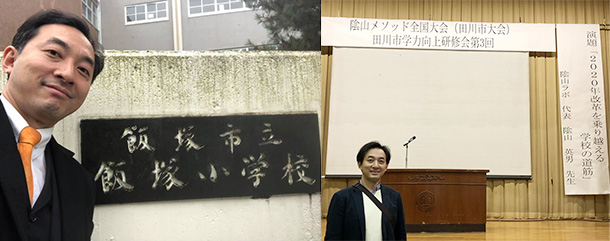 飯塚市立
飯塚小学校
陰山メソッド全国大会（田川市大会）
田川市学力向上研修会第3回
演題『2020年改革を乗り越える
学校の道筋』
陰山ラボ 代表 陰山 英男 先生